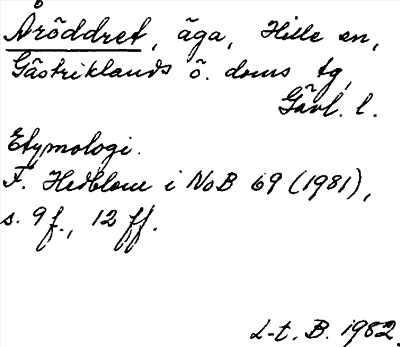 Åröddret, äga, Hille sn,
Gästriklands ö. doms tg,
Gävl. l.
Etymologi.
F. Hedblom i NoB 69 (1981),
s. 9f., 12 ff.
L-t. B. 1982.